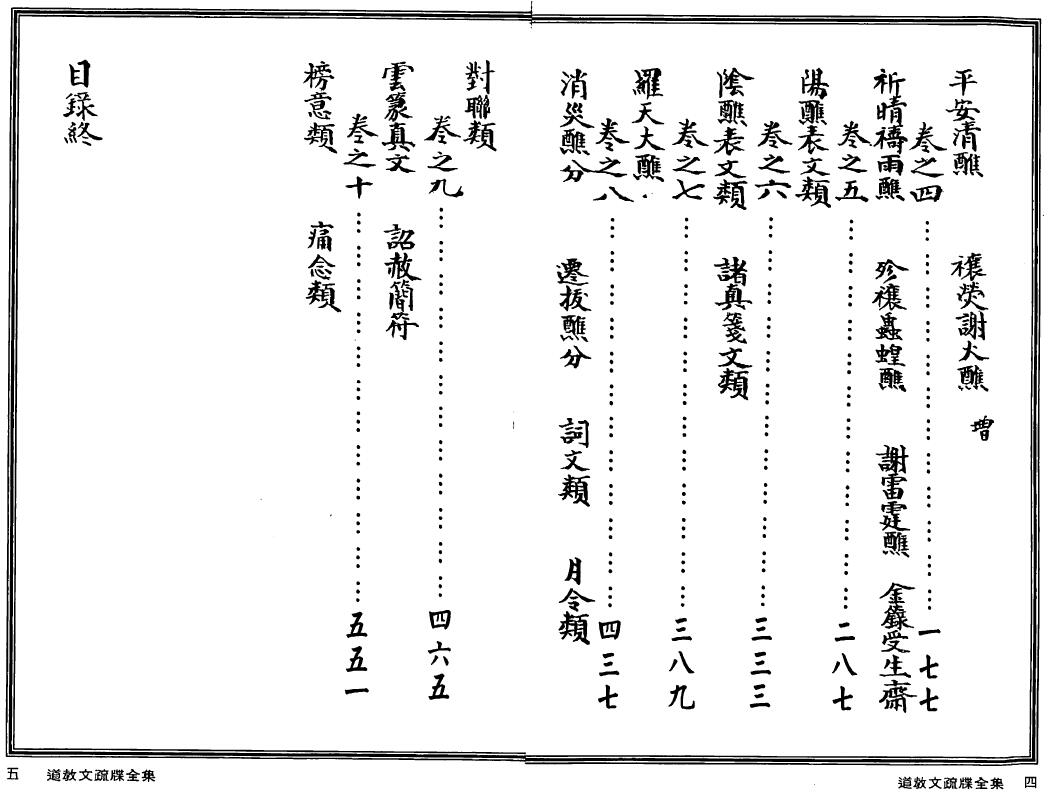 平安清醮　禳熒謝火醮　增
卷之四……一七七
祈晴禱雨醮　殄禳蟲蝗醮　謝雷霆醮　金籙受生齋
卷之五……二八七
陽醮表文類
卷之六……三三三
陰醮表文類　諸真箋文類
卷之七……三八九
羅天大醮
卷之八……四三七
消災醮分　遷拔醮分　詞文類　月令類
對聯類
卷之九……四六五
雲篆真文　詔赦簡符
卷之十……五五一
榜意類　痛念類
目錄終
道敎文疏牒全集　四
五　道敎文疏牒全集